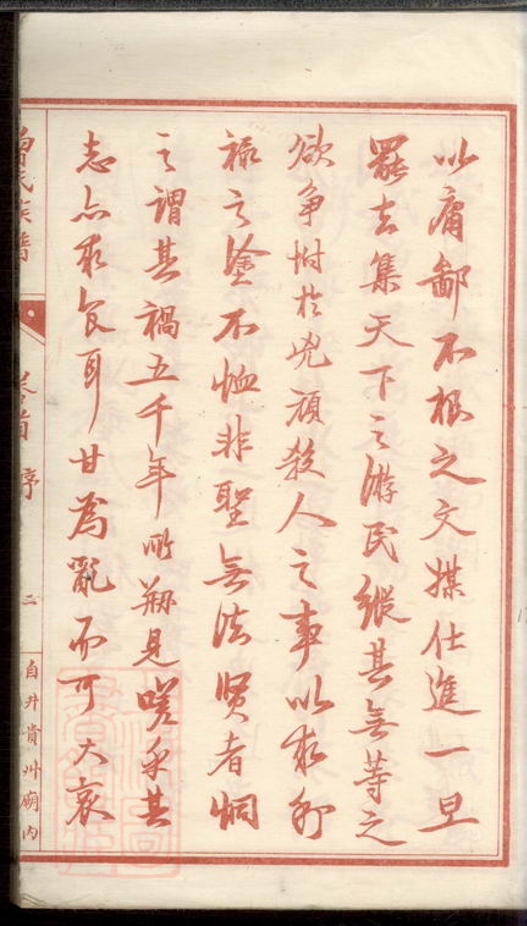 以庸鄙不根之文媒仕進一旦
罷去集天下之游民縱其無等之
欲爭附於兇頑殺人之事以求利
祿之塗不恤非聖無法賢者恫
之謂其禍五千年所剏見嗟乎其
志亦求食耳甘為亂而可大哀
曾氏族譜
卷首 序
二
自井貴州廟內